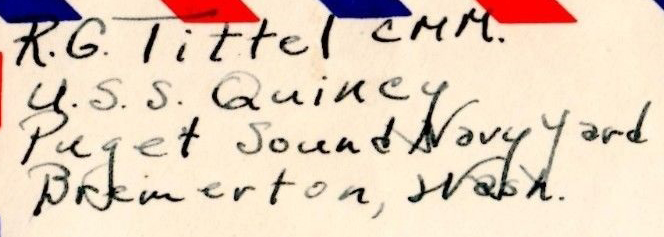 R.G. Tittel CMM.
U.S.S. Quincy
Puget Sound Navy Yard
Bremerton, Wash.